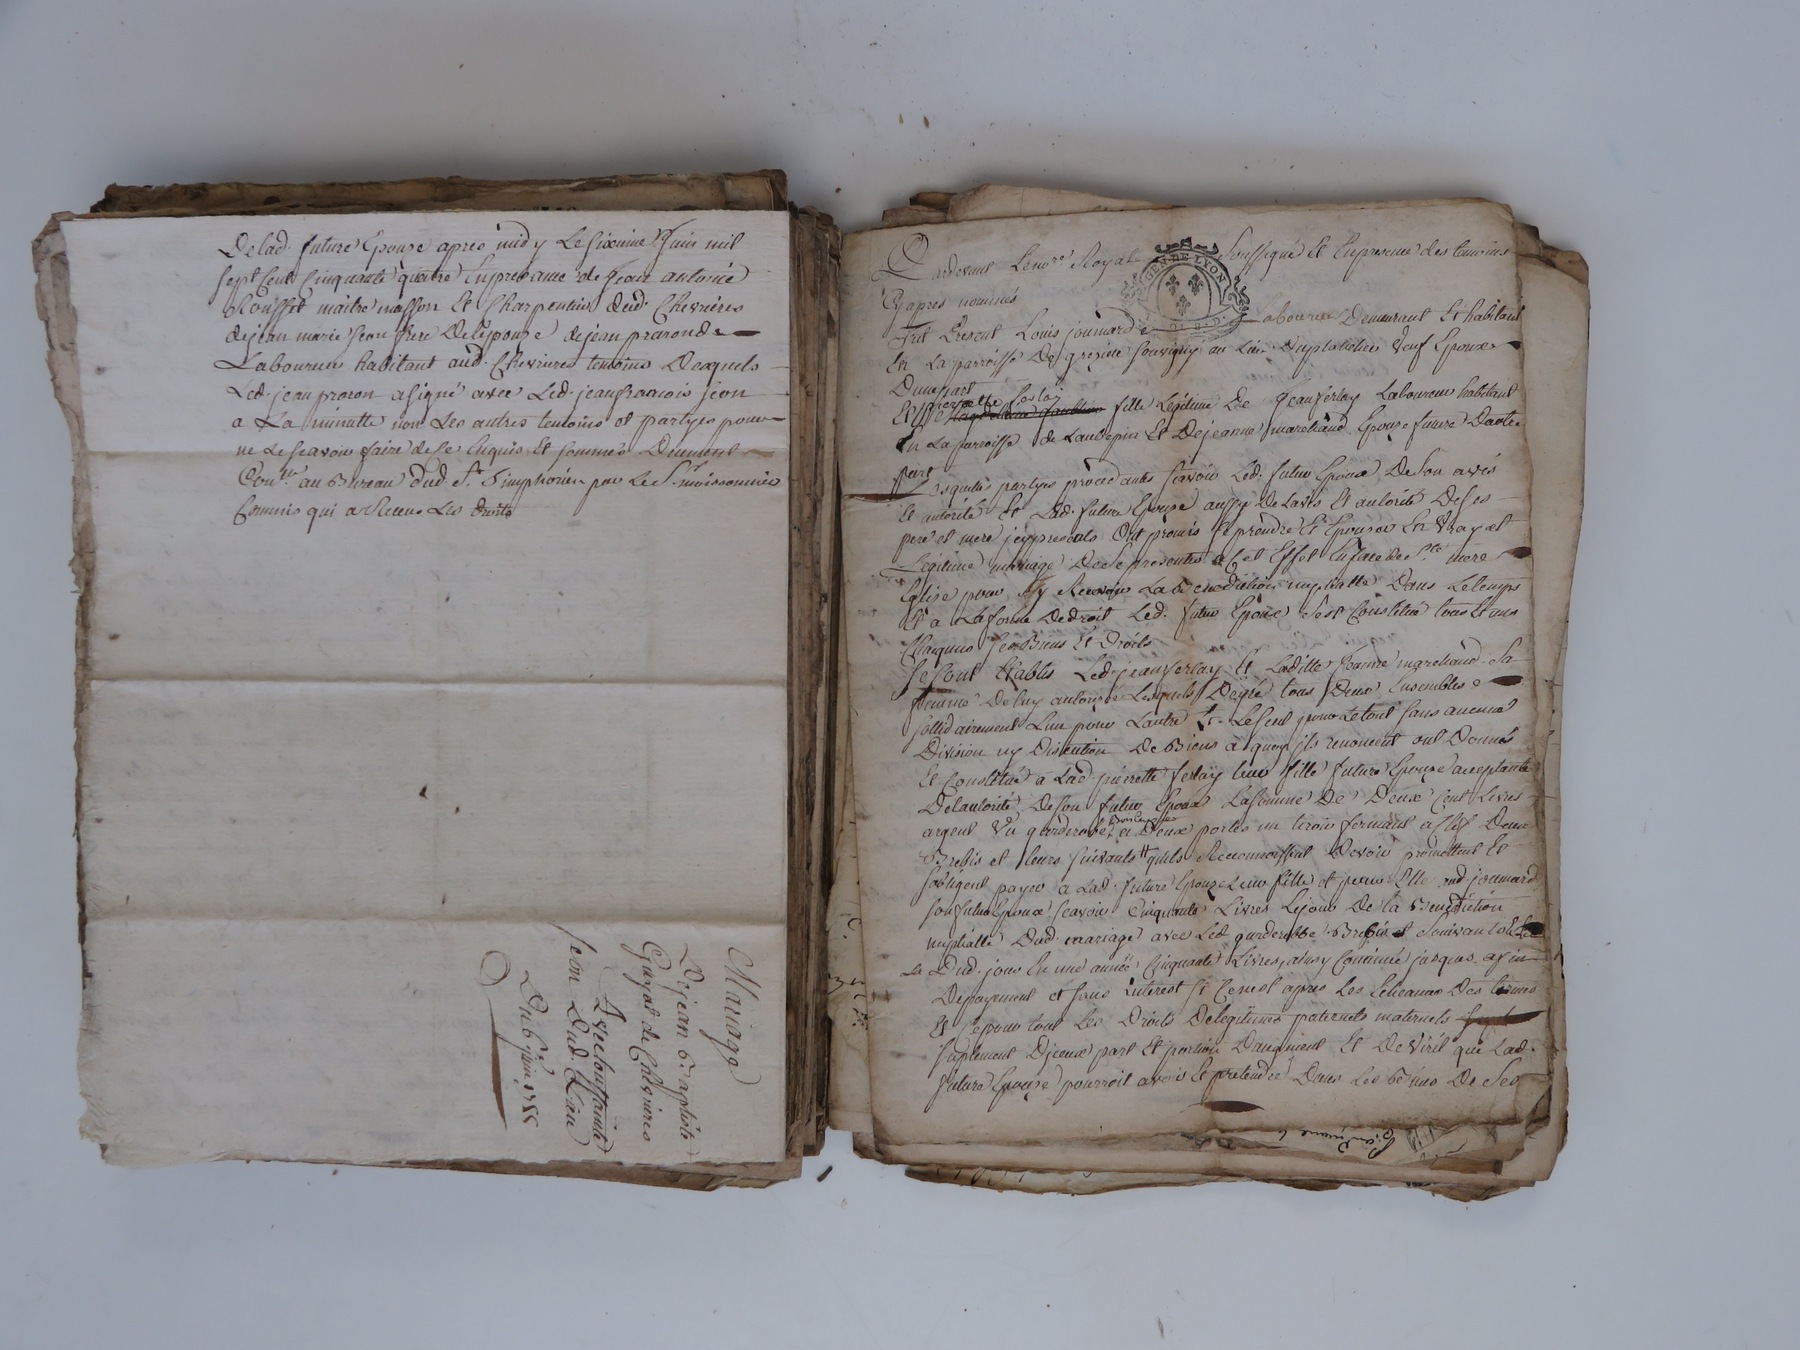 De lad. future Epouze apres midy Le sixieme Juin mil
sept Cent Cinquante quatre En presance de Jean antoine
Rousset maitre masson Et Charpentier dud. Chevrieres
de jean marie seon frere De lepouze de jean praron de
Laboureur habitant aud. Chevrieres temoins Desquels
Led. jean praron a signé avec Led. jean francois seon
a La minutte non Les autres temoins et partyes pour
ne Le scavoir faire de Ce Enquis Et sommés Duement
Con.lle au Bureau dud. St. Simphorien par Le Sr. moissonnier
Commis qui a Receu Les droits
Mariage
De jean Baptiste
Guyot de Chevrieres
Avec Constante
seon Dud. Lieu
Du 6e juin 17
Pardevant Le no.re Royal soussigné Et En presence des temoins
Cy apres nommés
GEN. DE LYON
fut Present Louis joumard Laboureur Demeurant Et habitant
En La parroisse De grezieu souvigny au Lieu Duplatelier Veuf Epoux
Dune part
Et pierrette ferlay fille Legitime De Jean ferlay Laboureur habitant
En La parroisse de Laubepin Et De jeanne marchand Epouze future Dautre
part
Lesquelles partyes procedantes scavoir Led. futur Epoux De son avis
Et autorité Et Lad. future Epouze aussy De Lavis Et autorité De ses
pere et mere jcy presents Ont promis se prendre Et Epouser En Vray et
Legitime mariage De se presenter a Cet Effet En face de s.te mere
Eglise pour Y Recevoir La benediction nuptialle Dans Le temps
Et a La forme De droit Led. futur Epoux s'est Constitué tous Et uns
Chacuns ses Biens Et Droits
se sont Etablis Led. jean ferlay Et Laditte Jeanne marchand sa
femme De luy autorisée Lesquels De gré tous Deux Ensembles
sollidairement Lun pour Lautre Et Le seul pour Le tout sans aucune
Division ny Discution De Biens a quoy jls renoncent ont Donné
Et Constitué a Lad. pierrette ferlay leur fille future Epouze acceptante
De Lautorité De son futur Epoux La somme De Deux Cent Livres
argent Un garderobe a Deux portes un tiroir fermant a Clef Deux
Brebis et leurs suivants qu'ils Reconnoissent Devoir promettent Et
sobligent payer a Lad. future Epouze Leur fille et pour Elle aud. joumard
son futur Epoux scavoir Cinquante Livres Le jour De la Benediction
nuptialle Dud. mariage avec Led. garderobbe Brebis et suivants
Dud. jour En une année Cinquante Livres, ainsy Continué jusques a fin
De payement et sans interest si Ce nest apres Les Echeances Des termes
Et Ce pour tout Les Droits De legitimes paternels maternels
suplement Djceux part Et portion Daugment Et De Viril que Lad.
future Epouze pourroit avoir Et pretendre Dans Les biens De Ses